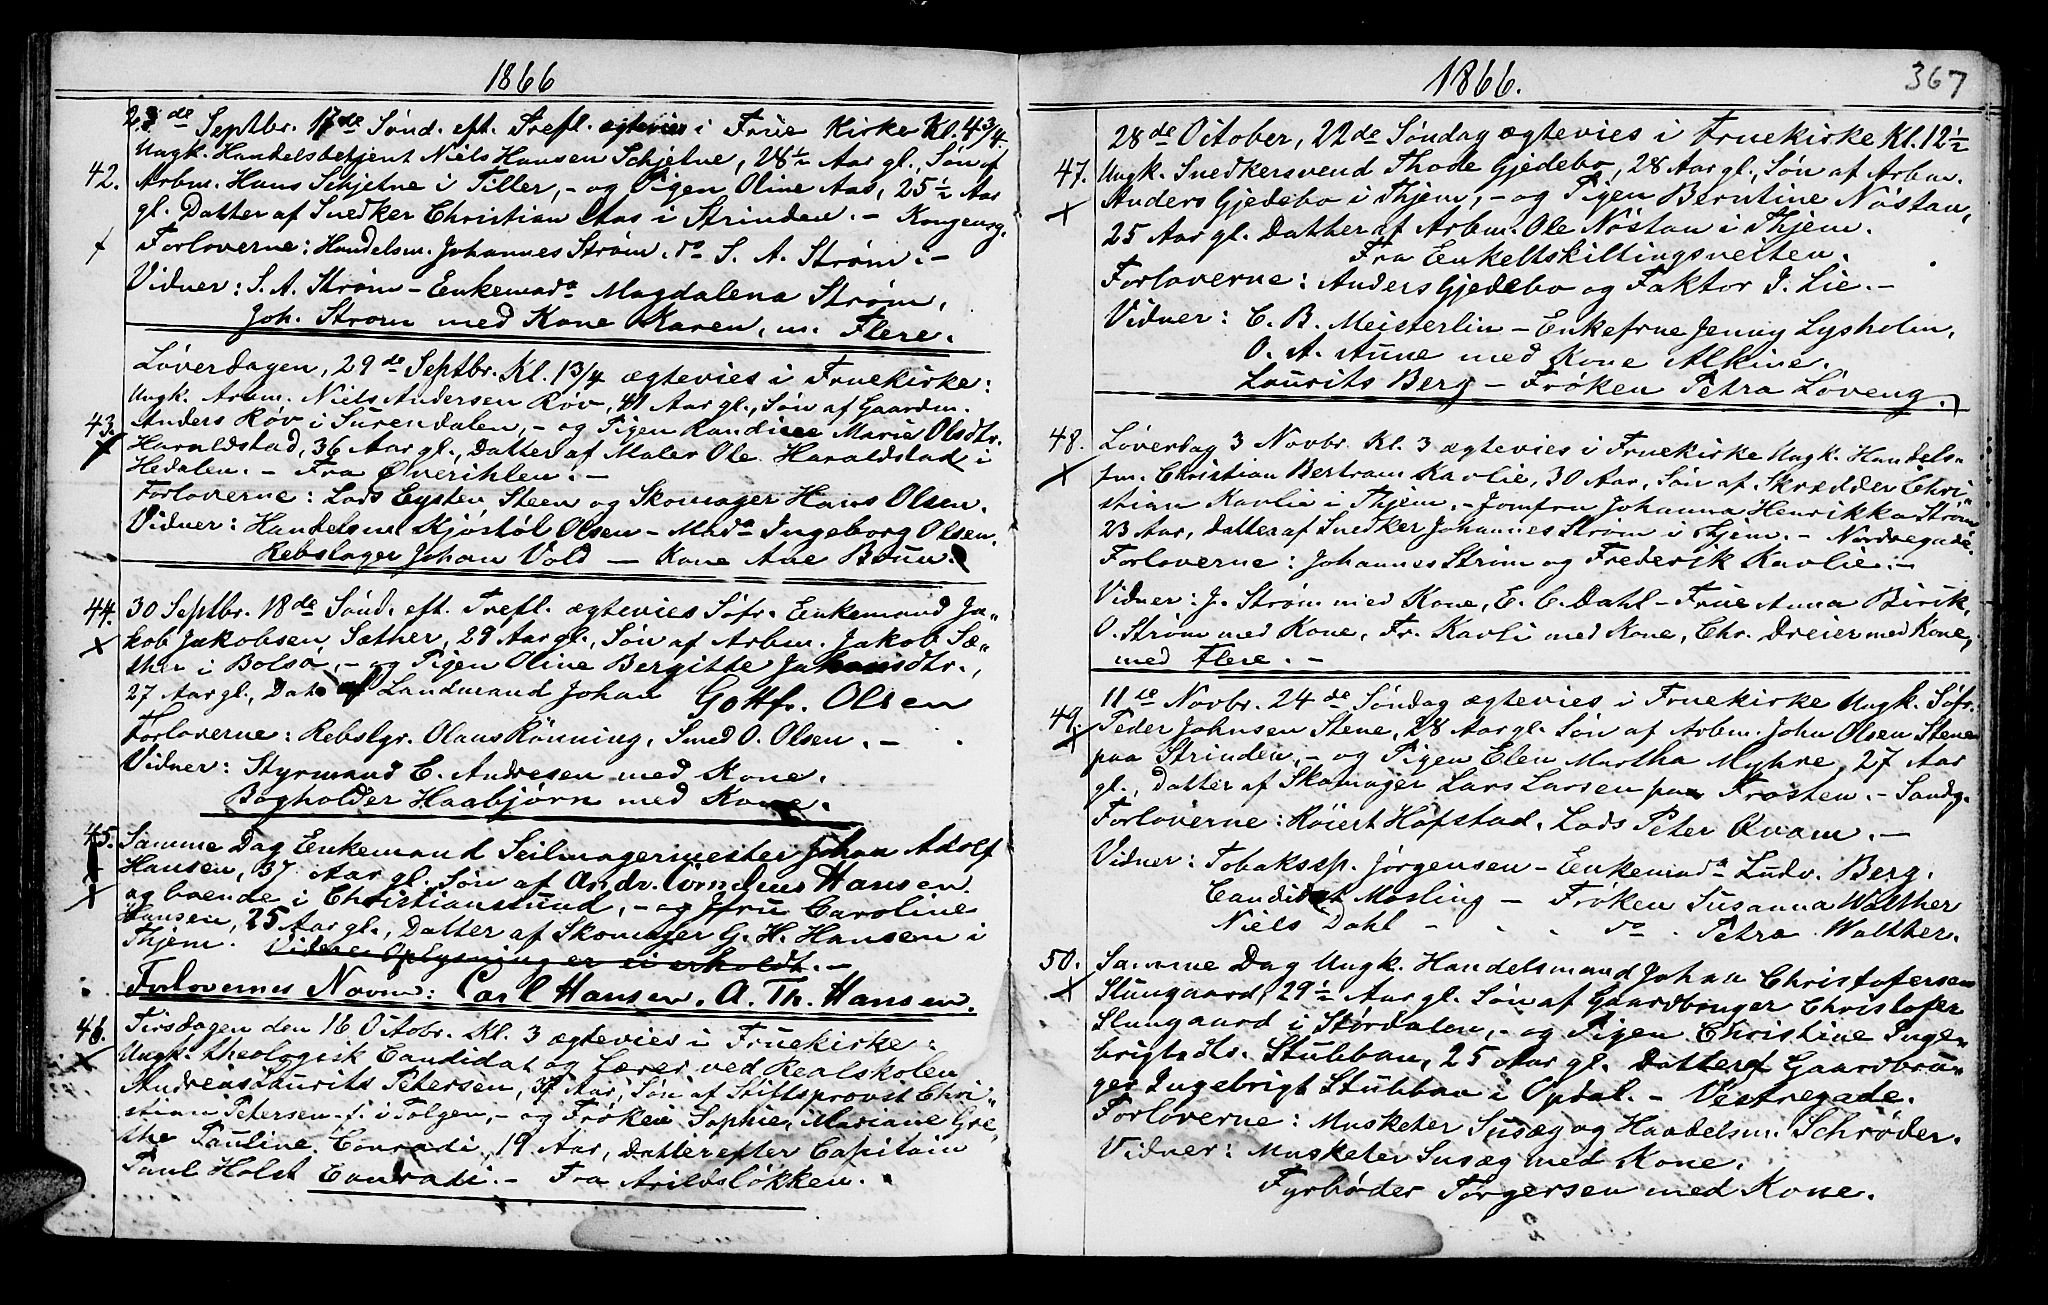 1866
23de Septbr. 17de Sønd. eft. Trefl. ægtevies i Frue Kirke Kl. 4 3/4.
42. Ungk. Handelsbetjent Niels Hansen Schjetne, 28 1/2 Aar gl., Søn af
Arbm. Hans Schjetne i Tiller, - og Pigen Oline Aas, 25 1/2 Aar
gl. Datter af Snedker Christian Aas i Strinden. - Kongensg.
Forloverne: Handelsm. Johannes Strøm. do S. A. Strøm. -
Vidner: S. A. Strøm - Enkemada Magdalena Strøm,
Joh. Strøm med Kone Karen, m. Flere.
Løverdagen, 29de Septbr. Kl. 1 3/4 ægtevies i Fruekirke:
Ungk. Arbm. Niels Andersen Røv, 41 Aar gl., Søn af Gaardm.
43. Anders Røv i Surendalen, - og Pigen Randine Marie Olsdtr.
Haraldstad, 36 Aar gl., Datter af Maler Ole Haraldstad i
Hedalen. - Fra Øverihlen. -
Forloverne: Lods Eysten Steen og Skomager Hans Olsen.
Vidner: Handelsm Kjøstøl Olsen - Mada Ingeborg Olsen.
Rebslager Johan Vold - Kone Ane Bruun.
44. 30 Septbr. 18de Sønd. eft. Trefl. ægtevies Søfr. Enkemand Ja-
kob Jakobsen Sæther, 29 Aar gl., Søn af Arbm. Jakob Sæ-
ther i Bolsø, - og Pigen Oline Bergitte Johansdtr.,
27 Aar gl., Dat. af Landmand Johan Gottfr. Olsen
Forloverne: Rebslgr. Olaus Rønning, Smed O. Olsen. -
Vidner: Styrmand E. Andresen med Kone.
Bogholder Haabjørn med Kone.
45. Samme Dag Enkemand Seilmagermester Johan Adolf
Hansen, 37 Aar gl. Søn af Andr. Cornelius Hansen
og boende i Christiansund, - og Jfru Caroline
Hansen, 25 Aar gl., Datter af Skomager G. H. Hansen i
Thjem. Videre Oplysning er ei erholdt. -
Forlovernes Navne: Carl Hansen. A. Th. Hansen.
46. Tirsdagen den 16 Octobr. Kl. 3 ægtevies i Fruekirke:
Ungk. theologisk Candidat og Lærer ved Realskolen
Andreas Laurits Petersen, Aar, Søn af Stiftsprovst Chri-
stian Petersen i Tolgen, - og Frøken Sophie Mariane Gre-
the Pauline Conradi, 19 Aar, Datter efter Capitain
Paul Holst Conradi. - Fra Arildsløkken.
1866.
367
28de October, 22de Søndag ægtevies i Fruekirke Kl. 12 1/2
47. Ungk. Snedkersvend Thode Gjedebo, 28 Aar gl., Søn af Arbm.
Anders Gjedebo i Thjem, - og Pigen Berntine Nøstan,
25 Aar gl. Datter af Arbm. Ole Nøstan i Thjem.
Fra Enkeltskillingsveiten.
Forloverne: Anders Gjedebo og Faktor J. Lie. -
Vidner: C. B. Meisterlin - Enkefrue Jenny Lysholm,
O. A. Aune med Kone Alkine.
Laurits Berg - Frøken Petra Løveng.
48. Løverdag 3 Novbr. Kl. 3 ægtevies i Fruekirke Ungk. Handels-
fm. Christian Bertram Kavlie, 30 Aar, Søn af Skrædder Chri-
stian Kavlie i Thjem. - Jomfru Johanna Henrikka Strøm
23 Aar, Datter af Snedker Johannes Strøm i Thjem. - Nordregade.
Forloverne: Johannes Strøm og Frederik Kavlie. -
Vidner: J. Strøm med Kone, E. C. Dahl - Frue Anna Birik,
O. Strøm med Kone, Fr. Kavli med Kone, Chr. Dreier med Kone,
med Flere. -
11te Novbr. 24de Søndag ægtevies i Fruekirke Ungk. Søfr.
49. Peder Johnsen Stene, 28 Aar gl. Søn af Arbm. John Olsen Stene
paa Strinden, - og Pigen Elen Martha Myhre, 27 Aar
gl., Datter af Skomager Lars Larsen paa Frosten. - Sandg.
Forloverne: Roiert Hofstad, Lods Peter Qvam. -
Vidner: Tobakssp. Jørgensen - Enkemada Ludv. Berg.
Candidat Mosling - Frøken Susanna Walther
Niels Dahl - - - do - Petra Walther.
50. Samme Dag Ungk. Handelsmand Johan Christofersen
Slungaard, 29 1/2 Aar gl. Søn af Gaardbruger Christofer
Slungaard i Størdalen, - og Pigen Christine Inge-
brigtsdtr. Stubban, 25 Aar gl. Datter af Gaardbru-
ger Ingebrigt Stubban i Opdal. - Vestregade.
Forloverne: Musketer Susæg og Handelsm. Schrøder.
Vidner: Musketer Susæg med Kone.
Fyrbøder Torgersen med Kone.